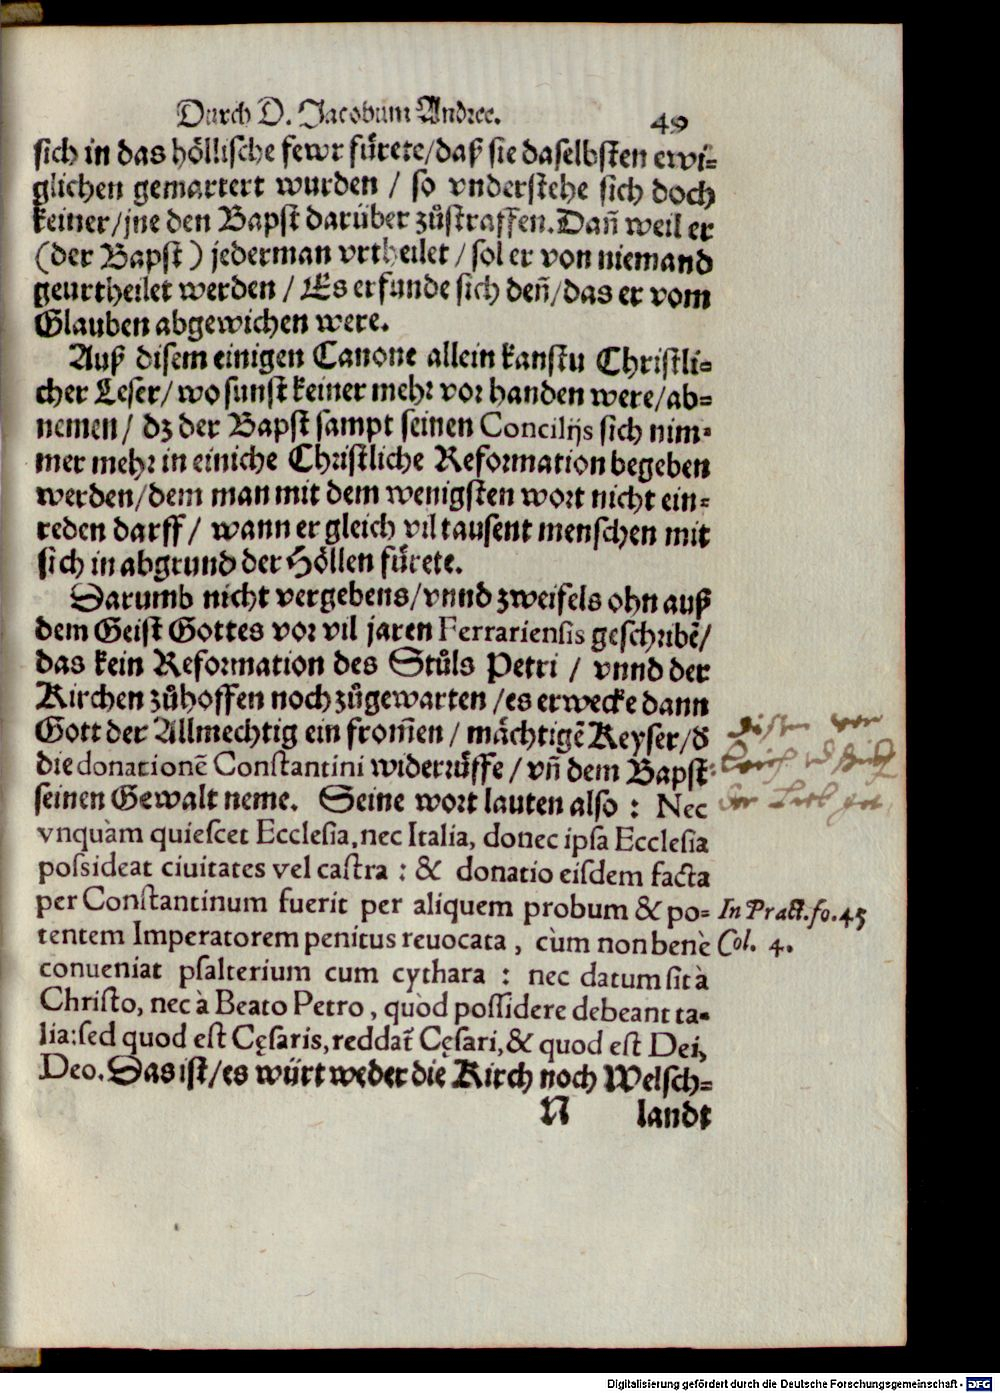 Durch D. Jacobum Andree. 49
sich in das höllische fewr fürete/daß sie daselbsten ewi-
glichen gemartert wurden / so vnderstehe sich doch
keiner/jne den Bapst darüber zůstraffen. Dañ weil er
(der Bapst) jederman vrtheilet / sol er von niemand
geurtheilet werden / Es erfunde sich deñ/das er vom
Glauben abgewichen were.
Auß disem einigen Canone allein kanstu Christli-
cher Leser/ wo sunst keiner mehr vor handen were/ab-
nemen / dz der Bapst sampt seinen Concilijs sich nim-
mer mehr in einiche Christliche Reformation begeben
werden/dem man mit dem wenigsten wort nicht ein-
reden darff / wann er gleich vil tausent menschen mit
sich in abgrund der Höllen fürete.
Darumb nicht vergebens/vnnd zweifels ohn auß
dem Geist Gottes vor vil jaren Ferrariensis geschribẽ/
das kein Reformation des Stůls Petri / vnnd der
Kirchen zůhoffen noch zůgewarten /es erwecke dann
Gott der Allmechtig ein from̃en / mächtigẽ Keyser/ď
die donationẽ Constantini widerrůffe / vñ dem Bapst
seinen Gewalt neme. Seine wort lauten also : Nec
vnquàm quiescet Ecclesia, nec Italia, donec ipsa Ecclesia
possideat ciuitates vel castra : & donatio eisdem facta
per Constantinum fuerit per aliquem probum & po-
In Pract. fo. 45
tentem Imperatorem penitus reuocata, cùm non benè
Col. 4.
conueniat psalterium cum cythara : nec datum sit à
Christo, nec à Beato Petro, quòd possidere debeant ta-
lia: sed quod est Cęsaris, reddat̃ Cęsari, & quod est Dei,
Deo. Das ist/es würt weder die Kirch noch Welsch-
N landt
Digitalisierung gefördert durch die Deutsche Forschungsgemeinschaft - DFG